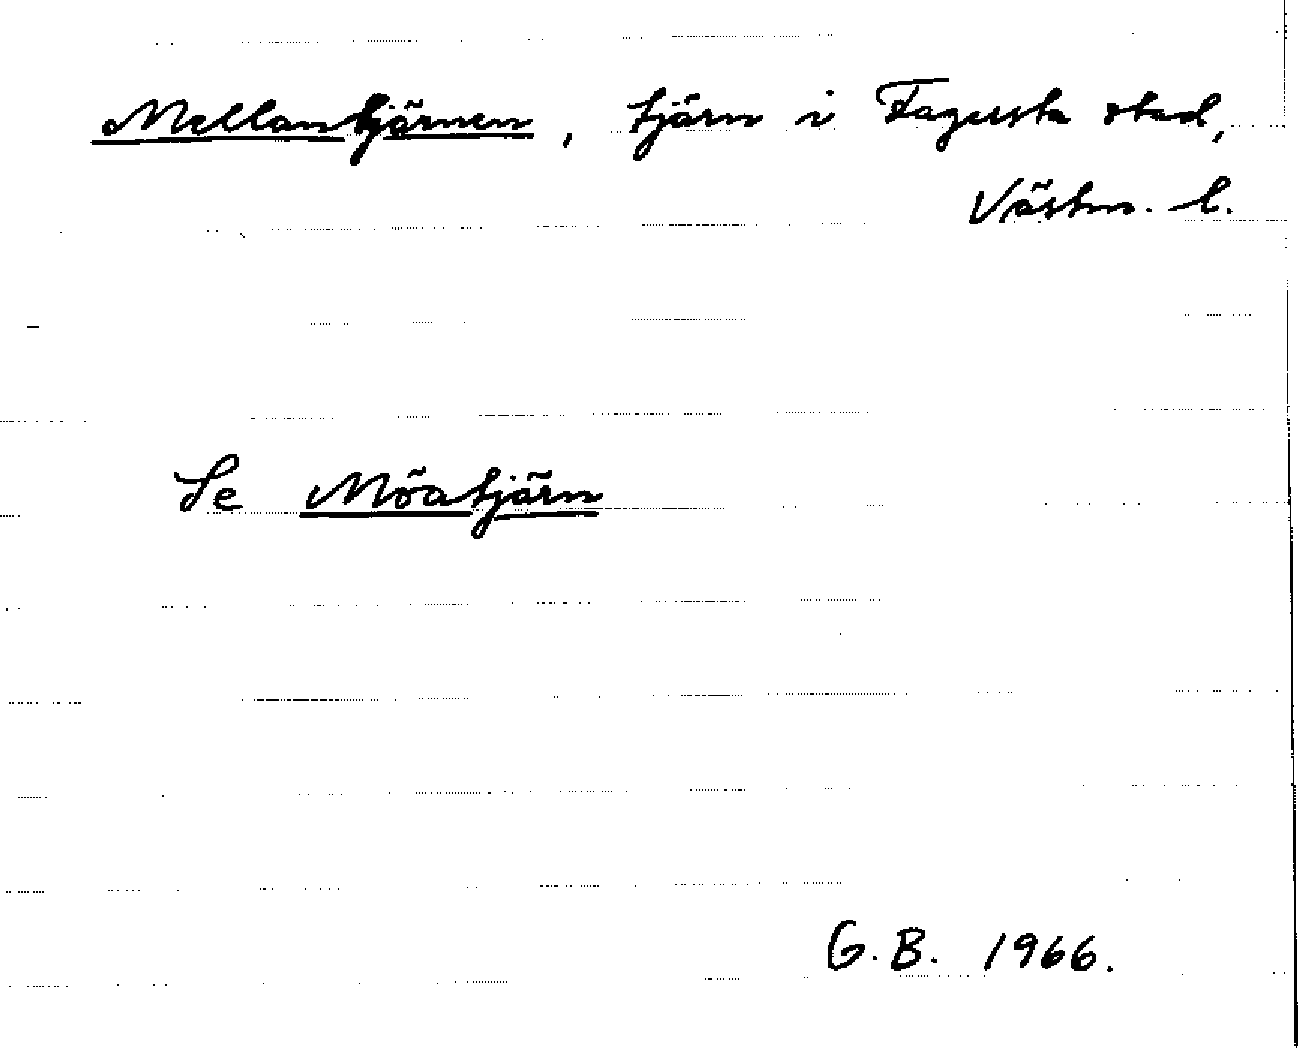 Mellantjärnen, tjärn i Fagersta stad,
Västm. l.
Se Möatjärn
G.B. 1966.